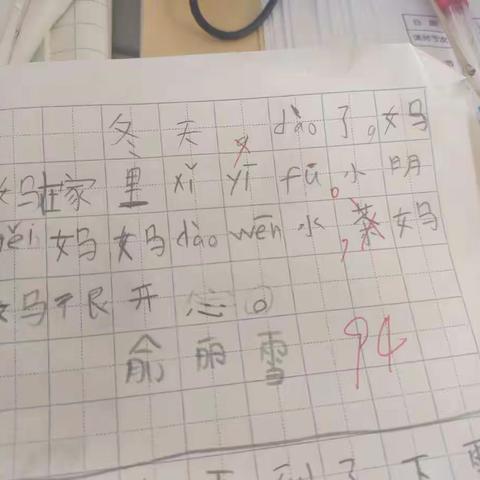 冬天 dào 了，妈
妈在家里 xǐ yī fú。小明
gěi 妈妈 dào wēn 水，茶妈
妈很开心。
俞雨雪
94